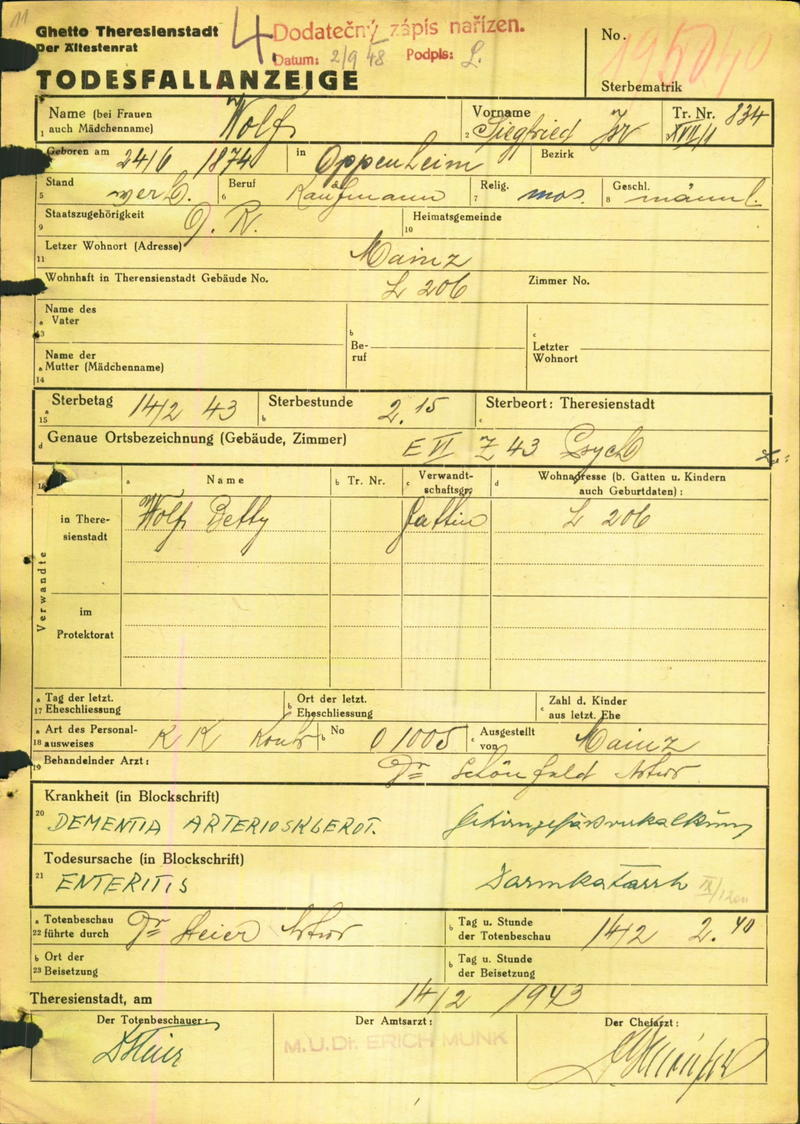 11
Ghetto Theresienstadt
Der Ältestenrat
4. Dodatečný zápis nařízen.
Datum: 2/9 48 Podpis: L.
TODESFALLANZEIGE
No.
Sterbematrik
Name (bei Frauen auch Mädchenname) Wolf
1
Vorname Siegfried Isr
2
Tr. Nr. 834
XVII/1
Geboren am 24/6 1874 in Oppenheim Bezirk
Stand verh. Beruf Kaufmann Relig. mos. Geschl. männl.
5 6 7 8
Staatszugehörigkeit D. R. Heimatsgemeinde
9 10
Letzer Wohnort (Adresse) Mainz
11
Wohnhaft in Theresienstadt Gebäude No. L 206 Zimmer No.
Name des
a Vater
13
b Be-
ruf
c Letzter
Wohnort
Name der
a Mutter (Mädchenname)
14
a Sterbetag 14/2 43 Sterbestunde 2.15 Sterbeort: Theresienstadt
15 b c
d Genaue Ortsbezeichnung (Gebäude, Zimmer) E VI Z 43 Psych
a Name b Tr. Nr. c Verwandt-
schaftsgr. d Wohnadresse (b. Gatten u. Kindern
auch Geburtdaten):
Verwandte
in There-
sienstadt
Wolf Betty Gattin L 206
im
Protektorat
a Tag der letzt.
17 Eheschliessung
b Ort der letzt.
Eheschliessung
c Zahl d. Kinder
aus letzt. Ehe
a Art des Personal-
18 ausweises K K b No 01005 c Ausgestellt
von Mainz
19 Behandelnder Arzt: Dr Schönfeld Artur
Krankheit (in Blockschrift)
20 DEMENTIA ARTERIOSKLEROT. Gehirngefässverkalkung
Todesursache (in Blockschrift)
21 ENTERITIS Darmkatarrh
a Totenbeschau
22 führte durch Dr Steier Artur
b Tag u. Stunde
der Totenbeschau 14/2 2.40
b Ort der
23 Beisetzung
b Tag u. Stunde
der Beisetzung
Theresienstadt, am 14/2 1943
Der Totenbeschauer: Der Amtsarzt: Der Chefarzt:
M.U.Dr. ERICH MUNK